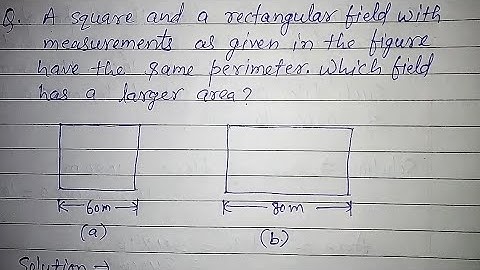 Q. A square and a rectangular field with
measurements as given in the figure
have the same perimeter. Which field
has a larger area?
60m 80m
(a) (b.)
Solution →